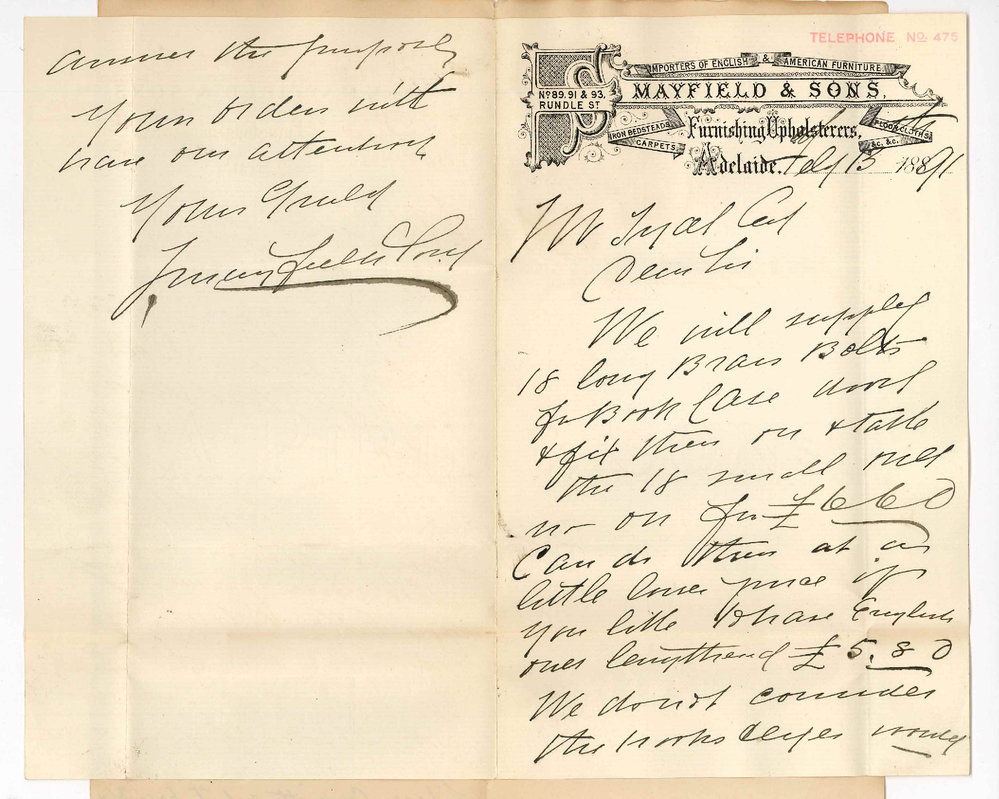 TELEPHONE No. 475
IMPORTERS OF ENGLISH & AMERICAN FURNITURE
MAYFIELD & SONS,
Nos 89. 91 & 93. RUNDLE ST
IRON BEDSTEADS, CARPETS,
Furnishing Upholsterers,
FLOOR CLOTHS &c. &c.
Adelaide. Feby 13 1891
Mr
Dear Sir
We will supply
18 long Brass Bolts
for Book Case doors
& fix them on & take
the 18 small ones
on for £6 6 0
Can do them at a
little lower price if
you like to have English
ones lengthened £5. 8 0
We do not consider
the hooks & eyes would
answer the purpose
Your orders will
have our attention
Yours Truly
Mayfield & Sons